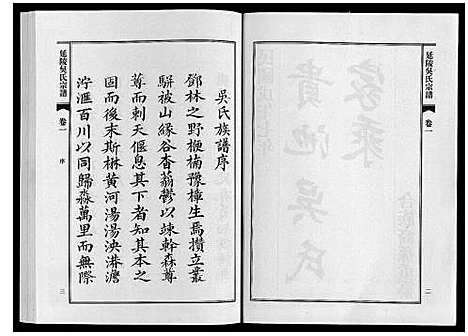 延陵吳氏宗譜
卷一
二
家乘
貴池吳氏
延陵吳氏宗譜
卷一
序
三
吳氏族譜序
鄧林之野楩楠豫樟生焉攢立叢
駢被山緣谷杳蓊鬱以竦幹森尊
蓴而刺天偃息其下者知其本之
固而後末斯楙黃河湯湯泱漭澹
泞滙百川以同歸淼萬里而無際